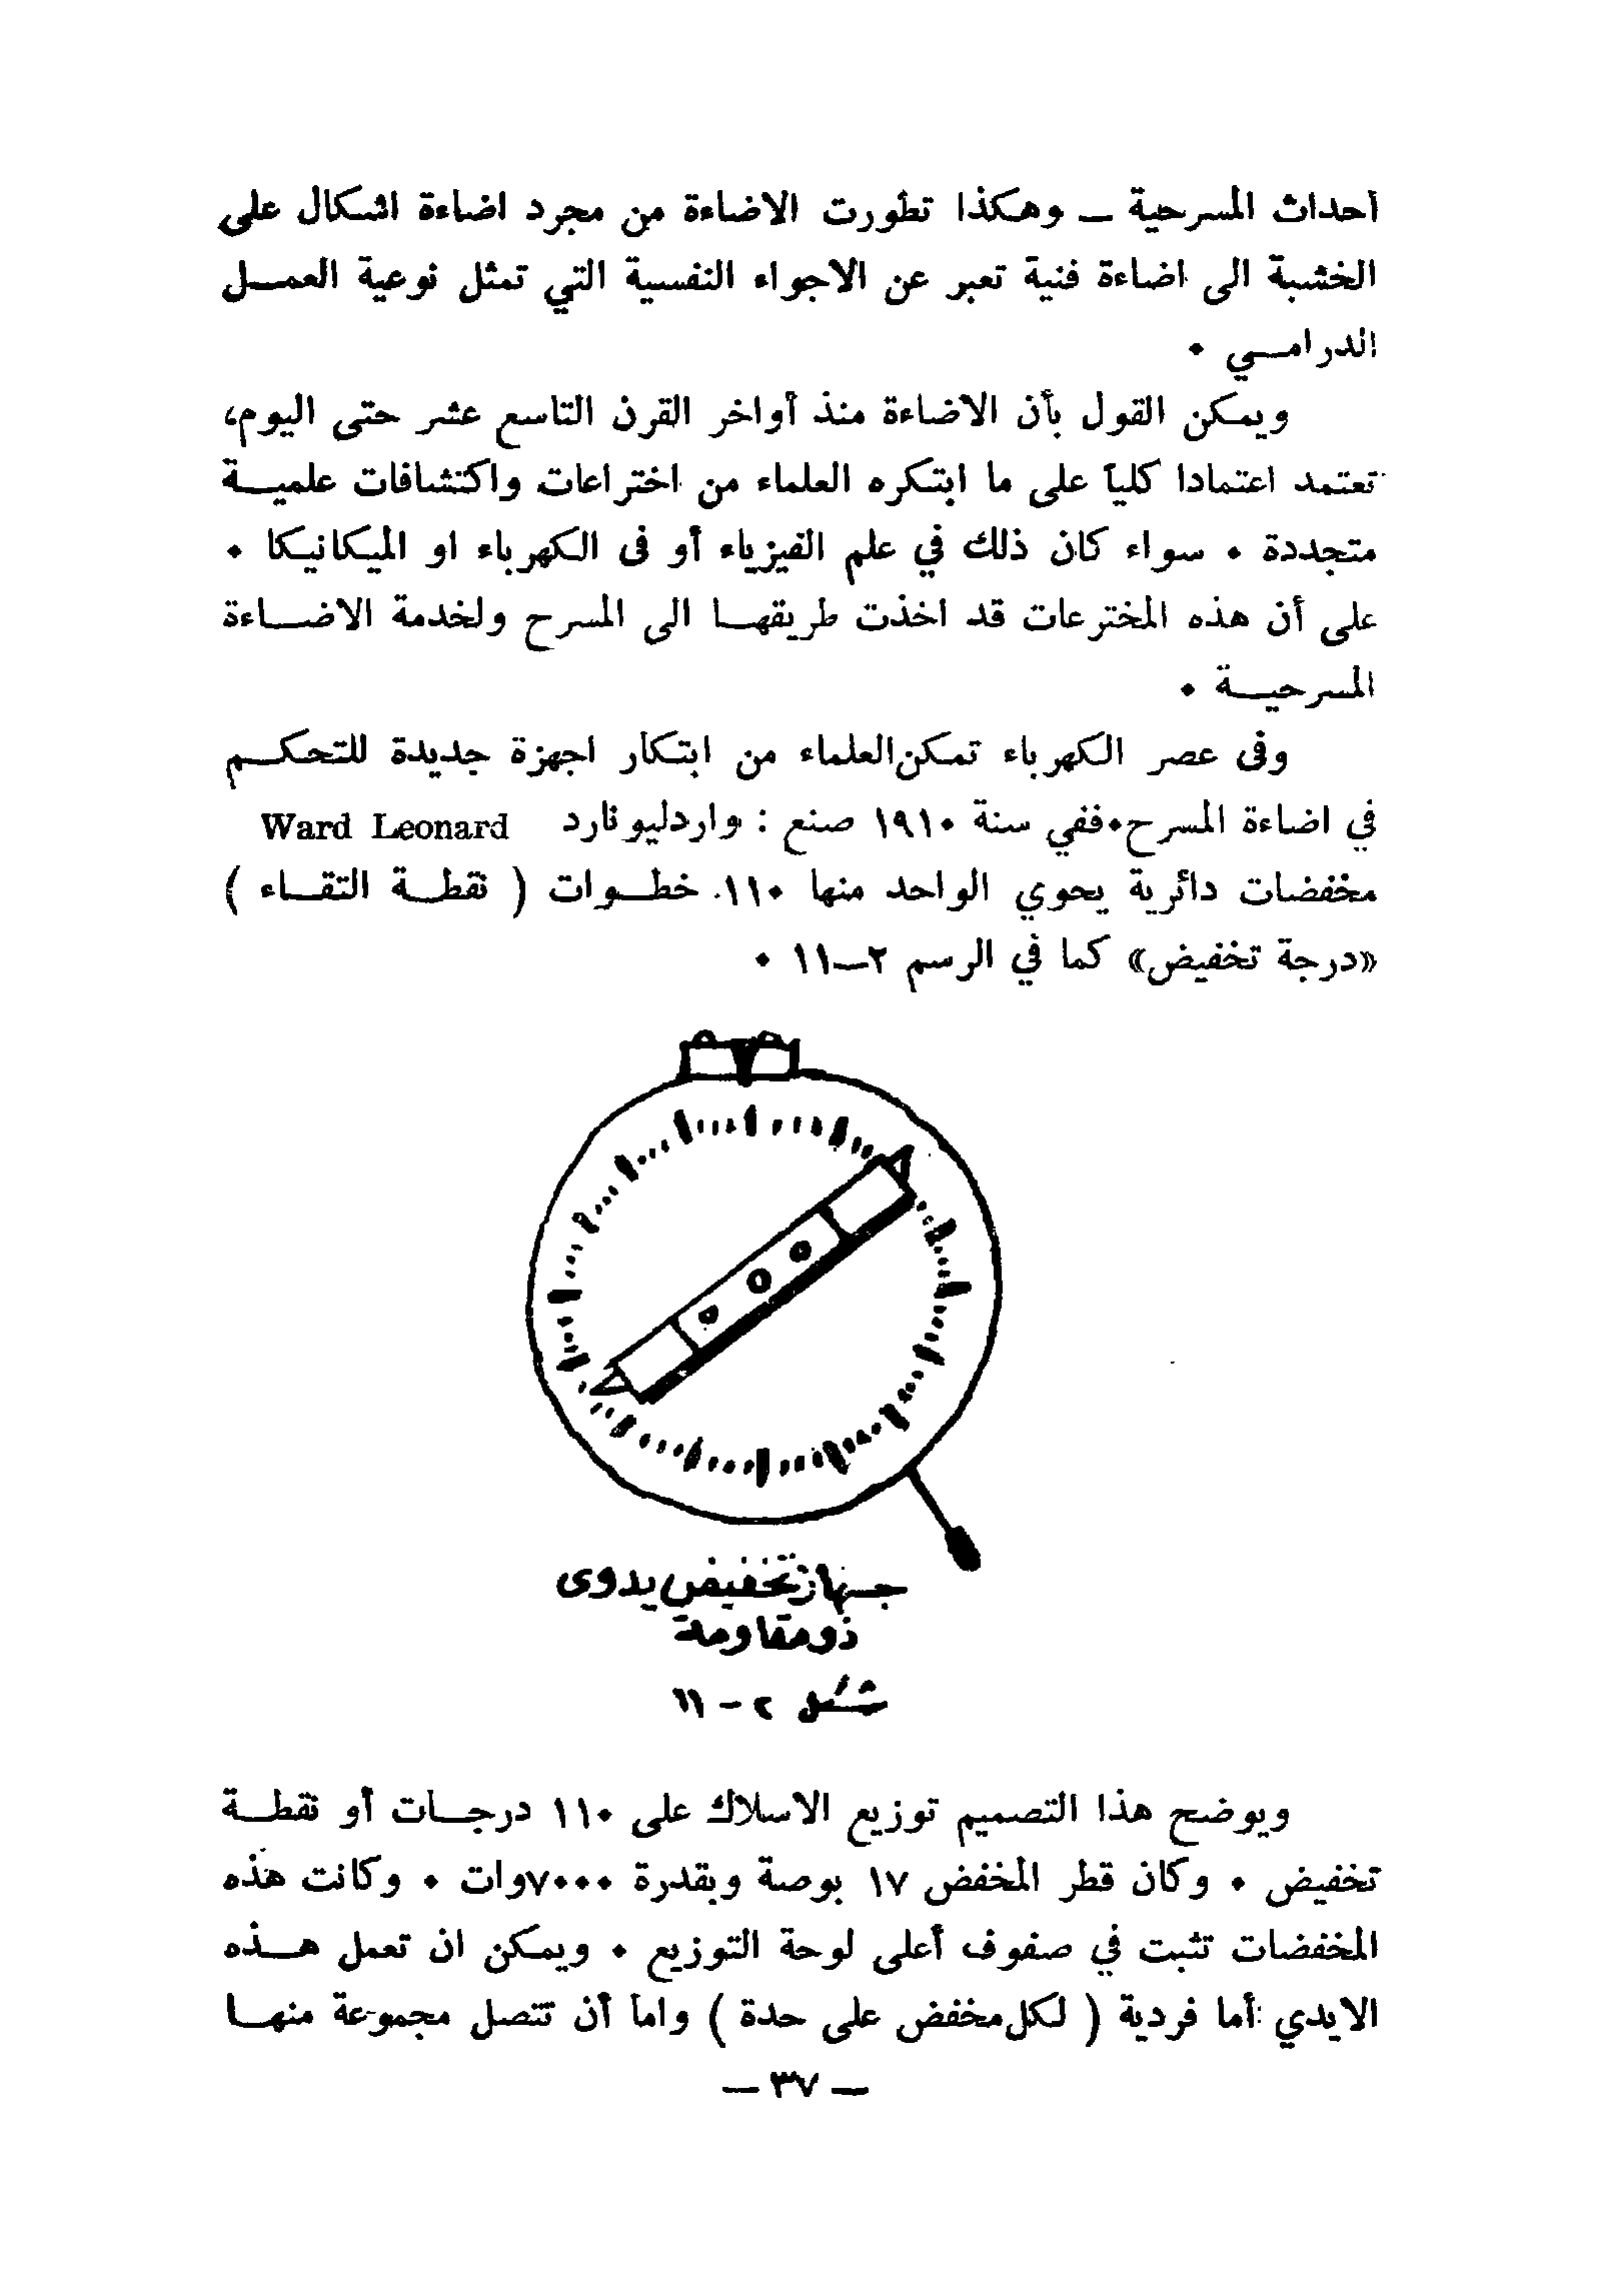 أحداث المسرحية ــ وهكذا تطورت الاضاءة من مجرد اضاءة اشكال على
الخشبة الى اضاءة فنية تعبر عن الاجواء النفسية التي تمثل نوعية العمــل
الدرامــي ٠
ويمكن القول بأن الاضاءة منذ أواخر القرن التاسع عشر حتى اليوم،
تعتمد اعتمادا كلياً على ما ابتكره العلماء من اختراعات واكتشافات علميــة
متجددة ٠ سواء كان ذلك في علم الفيزياء أو فى الكهرباء او الميكانيكا ٠
على أن هذه المخترعات قد اخذت طريقهــا الى المسرح ولخدمة الاضــاءة
المسرحيــة ٠
وفى عصر الكهرباء تمكن العلماء من ابتكار اجهزة جديدة للتحكــم
في اضاءة المسرح٠ففي سنة ١٩١٠ صنع : واردليونارد Ward Leonard
مخفضات دائرية يحوي الواحد منها ١١٠ خطــوات ( نقطــة التقــاء )
«درجة تخفيض» كما في الرسم ٢ــ١١ ٠
جهاز تخفيض يدوى
ذو مقاومة
شكل ٢ - ١١
ويوضح هذا التصميم توزيع الاسلاك على ١١٠ درجــات أو نقطــة
تخفيض ٠ وكان قطر المخفض ١٧ بوصة وبقدرة ٧٠٠٠وات ٠ وكانت هذه
المخفضات تثبت في صفوف أعلى لوحة التوزيع ٠ ويمكن ان تعمل هــذه
الايدي أما فردية ( لكل مخفض على حدة ) واما أن تتصل مجموعة منهــا
ــ ٣٧ ــ